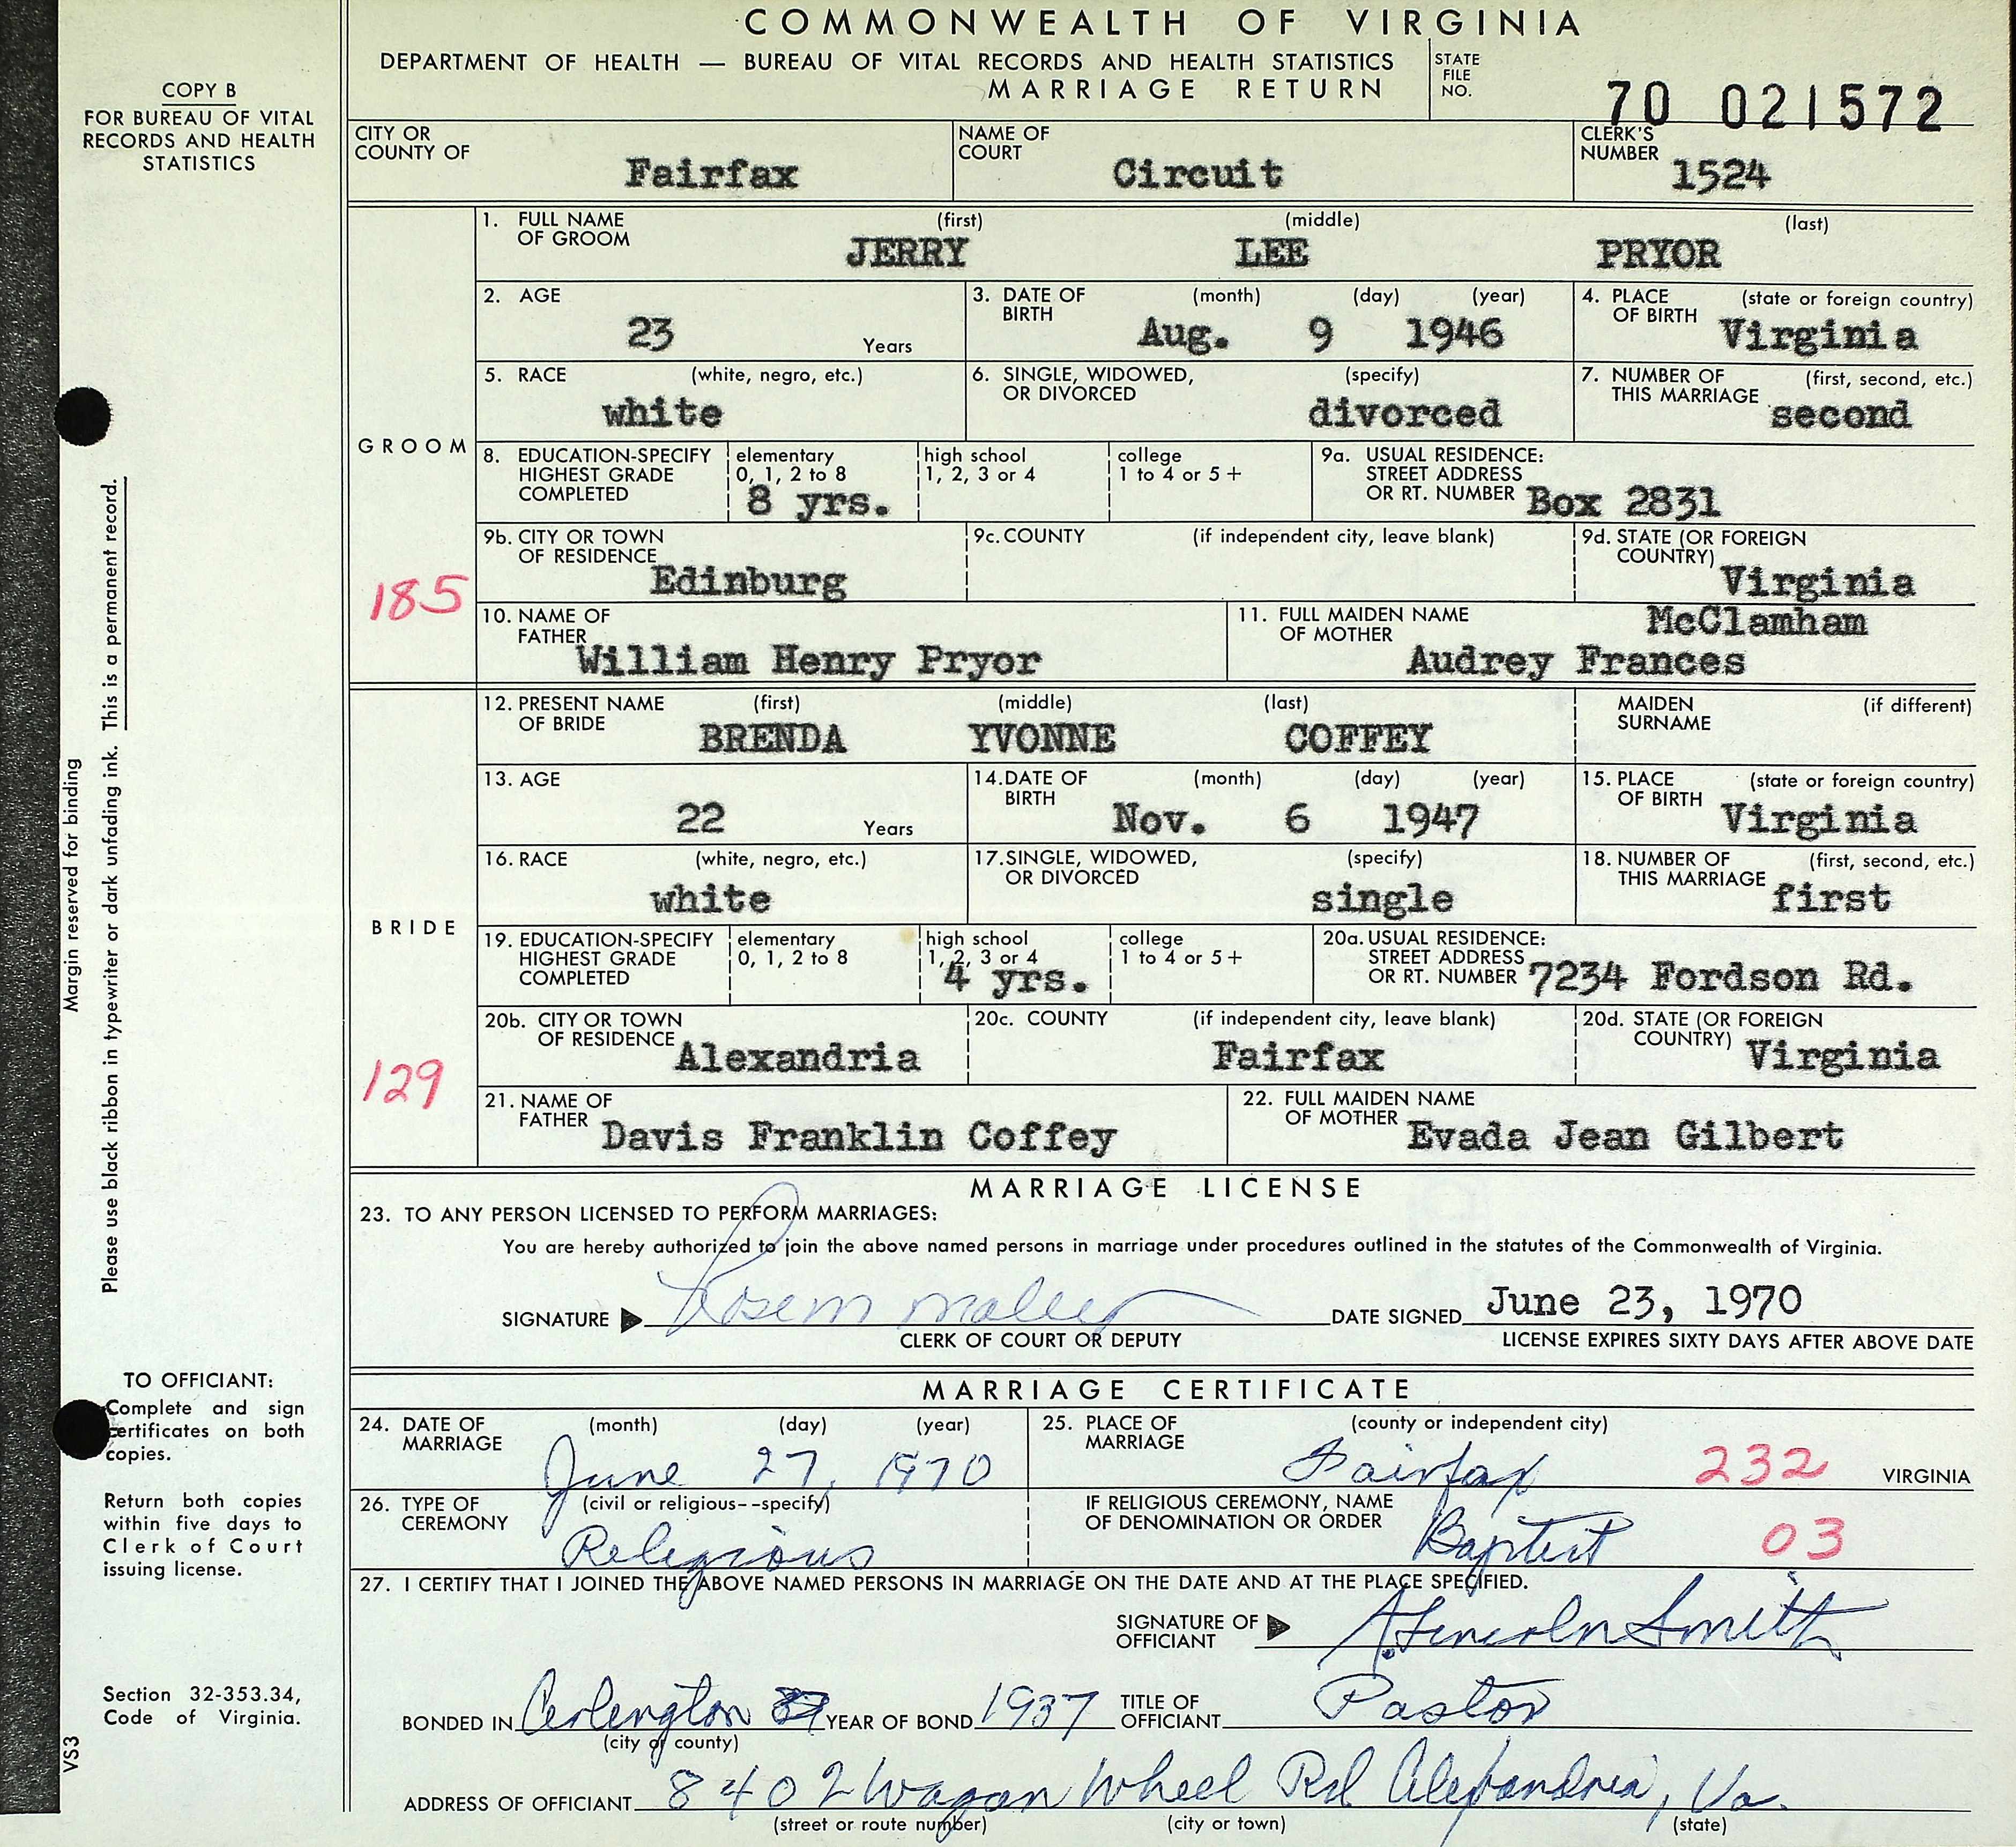 COMMONWEALTH OF VIRGINIA
DEPARTMENT OF HEALTH — BUREAU OF VITAL RECORDS AND HEALTH STATISTICS
MARRIAGE RETURN
STATE FILE NO. 70 021572
COPY B
FOR BUREAU OF VITAL
RECORDS AND HEALTH
STATISTICS
CITY OR COUNTY OF Fairfax
NAME OF COURT Circuit
CLERK'S NUMBER 1524
GROOM
185
1. FULL NAME OF GROOM (first) JERRY (middle) LEE (last) PRYOR
2. AGE 23 Years
3. DATE OF BIRTH (month) (day) (year) Aug. 9 1946
4. PLACE OF BIRTH (state or foreign country) Virginia
5. RACE (white, negro, etc.) white
6. SINGLE, WIDOWED, OR DIVORCED (specify) divorced
7. NUMBER OF THIS MARRIAGE (first, second, etc.) second
8. EDUCATION-SPECIFY HIGHEST GRADE COMPLETED
elementary 0, 1, 2 to 8 8 yrs.
high school 1, 2, 3 or 4
college 1 to 4 or 5+
9a. USUAL RESIDENCE: STREET ADDRESS OR RT. NUMBER Box 2831
9b. CITY OR TOWN OF RESIDENCE Edinburg
9c. COUNTY (if independent city, leave blank)
9d. STATE (OR FOREIGN COUNTRY) Virginia
10. NAME OF FATHER William Henry Pryor
11. FULL MAIDEN NAME OF MOTHER McClamham
Audrey Frances
BRIDE
129
12. PRESENT NAME OF BRIDE (first) BRENDA (middle) YVONNE (last) COFFEY
MAIDEN SURNAME (if different)
13. AGE 22 Years
14. DATE OF BIRTH (month) (day) (year) Nov. 6 1947
15. PLACE OF BIRTH (state or foreign country) Virginia
16. RACE (white, negro, etc.) white
17. SINGLE, WIDOWED, OR DIVORCED (specify) single
18. NUMBER OF THIS MARRIAGE (first, second, etc.) first
19. EDUCATION-SPECIFY HIGHEST GRADE COMPLETED
elementary 0, 1, 2 to 8
high school 1, 2, 3 or 4 4 yrs.
college 1 to 4 or 5+
20a. USUAL RESIDENCE: STREET ADDRESS OR RT. NUMBER 7234 Fordson Rd.
20b. CITY OR TOWN OF RESIDENCE Alexandria
20c. COUNTY (if independent city, leave blank) Fairfax
20d. STATE (OR FOREIGN COUNTRY) Virginia
21. NAME OF FATHER Davis Franklin Coffey
22. FULL MAIDEN NAME OF MOTHER Evada Jean Gilbert
MARRIAGE LICENSE
23. TO ANY PERSON LICENSED TO PERFORM MARRIAGES:
You are hereby authorized to join the above named persons in marriage under procedures outlined in the statutes of the Commonwealth of Virginia.
SIGNATURE
CLERK OF COURT OR DEPUTY
DATE SIGNED June 23, 1970
LICENSE EXPIRES SIXTY DAYS AFTER ABOVE DATE
MARRIAGE CERTIFICATE
24. DATE OF MARRIAGE (month) (day) (year) June 27, 1970
25. PLACE OF MARRIAGE (county or independent city) Fairfax 232 VIRGINIA
26. TYPE OF CEREMONY (civil or religious--specify) Religious
IF RELIGIOUS CEREMONY, NAME OF DENOMINATION OR ORDER Baptist 03
27. I CERTIFY THAT I JOINED THE ABOVE NAMED PERSONS IN MARRIAGE ON THE DATE AND AT THE PLACE SPECIFIED.
SIGNATURE OF OFFICIANT A. Lincoln Smith
BONDED IN Arlington YEAR OF BOND 1937
(city or county)
TITLE OF OFFICIANT Pastor
ADDRESS OF OFFICIANT 8402 Wagon Wheel Rd Alexandria, Va.
(street or route number) (city or town) (state)
Margin reserved for binding
Please use black ribbon in typewriter or dark unfading ink. This is a permanent record.
TO OFFICIANT:
Complete and sign
certificates on both
copies.
Return both copies
within five days to
Clerk of Court
issuing license.
Section 32-353.34,
Code of Virginia.
VS3